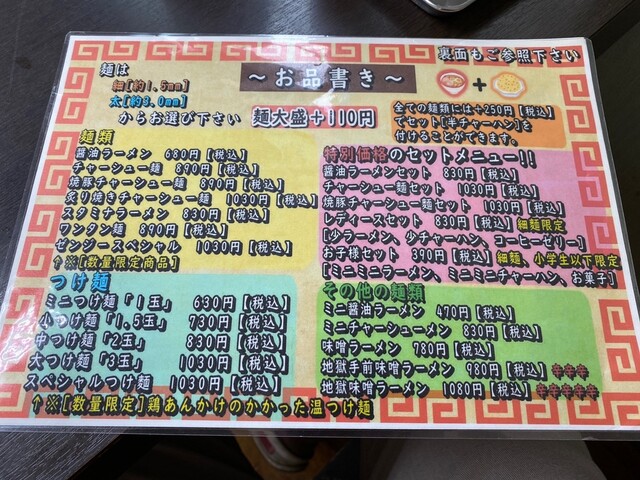 裏面もご参照下さい
～お品書き～
麺は
細[約1.5mm]
太[約3.0mm]
からお選び下さい
麺大盛+110円
全ての麺類には+250円【税込】
でセット[半チャーハン]を
付けることができます。
麺類
醤油ラーメン 680円【税込】
チャーシュー麺 890円【税込】
焼豚チャーシュー麺 890円【税込】
炙り焼きチャーシュー麺 1030円【税込】
スタミナラーメン 830円【税込】
ワンタン麺 890円【税込】
ゼンジースペシャル 1030円【税込】
↑※[数量限定商品]
特別価格のセットメニュー!!
醤油ラーメンセット 830円【税込】
チャーシュー麺セット 1030円【税込】
焼豚チャーシュー麺セット 1030円【税込】
レディースセット 830円【税込】細麺限定
[少ラーメン、少チャーハン、コーヒーゼリー]
お子様セット 390円【税込】細麺、小学生以下限定
[ミニミニラーメン、ミニミニチャーハン、お菓子]
つけ麺
ミニつけ麺「1玉」 630円【税込】
小つけ麺「1,5玉」 730円【税込】
中つけ麺「2玉」 830円【税込】
大つけ麺「3玉」 1030円【税込】
スペシャルつけ麺 1030円【税込】
↑※[数量限定]鶏あんかけのかかった温つけ麺
その他の麺類
ミニ醤油ラーメン 470円【税込】
ミニチャーシューメン 830円【税込】
味噌ラーメン 780円【税込】
地獄手前味噌ラーメン 980円【税込】辛辛辛
地獄味噌ラーメン 1080円【税込】辛辛辛辛辛